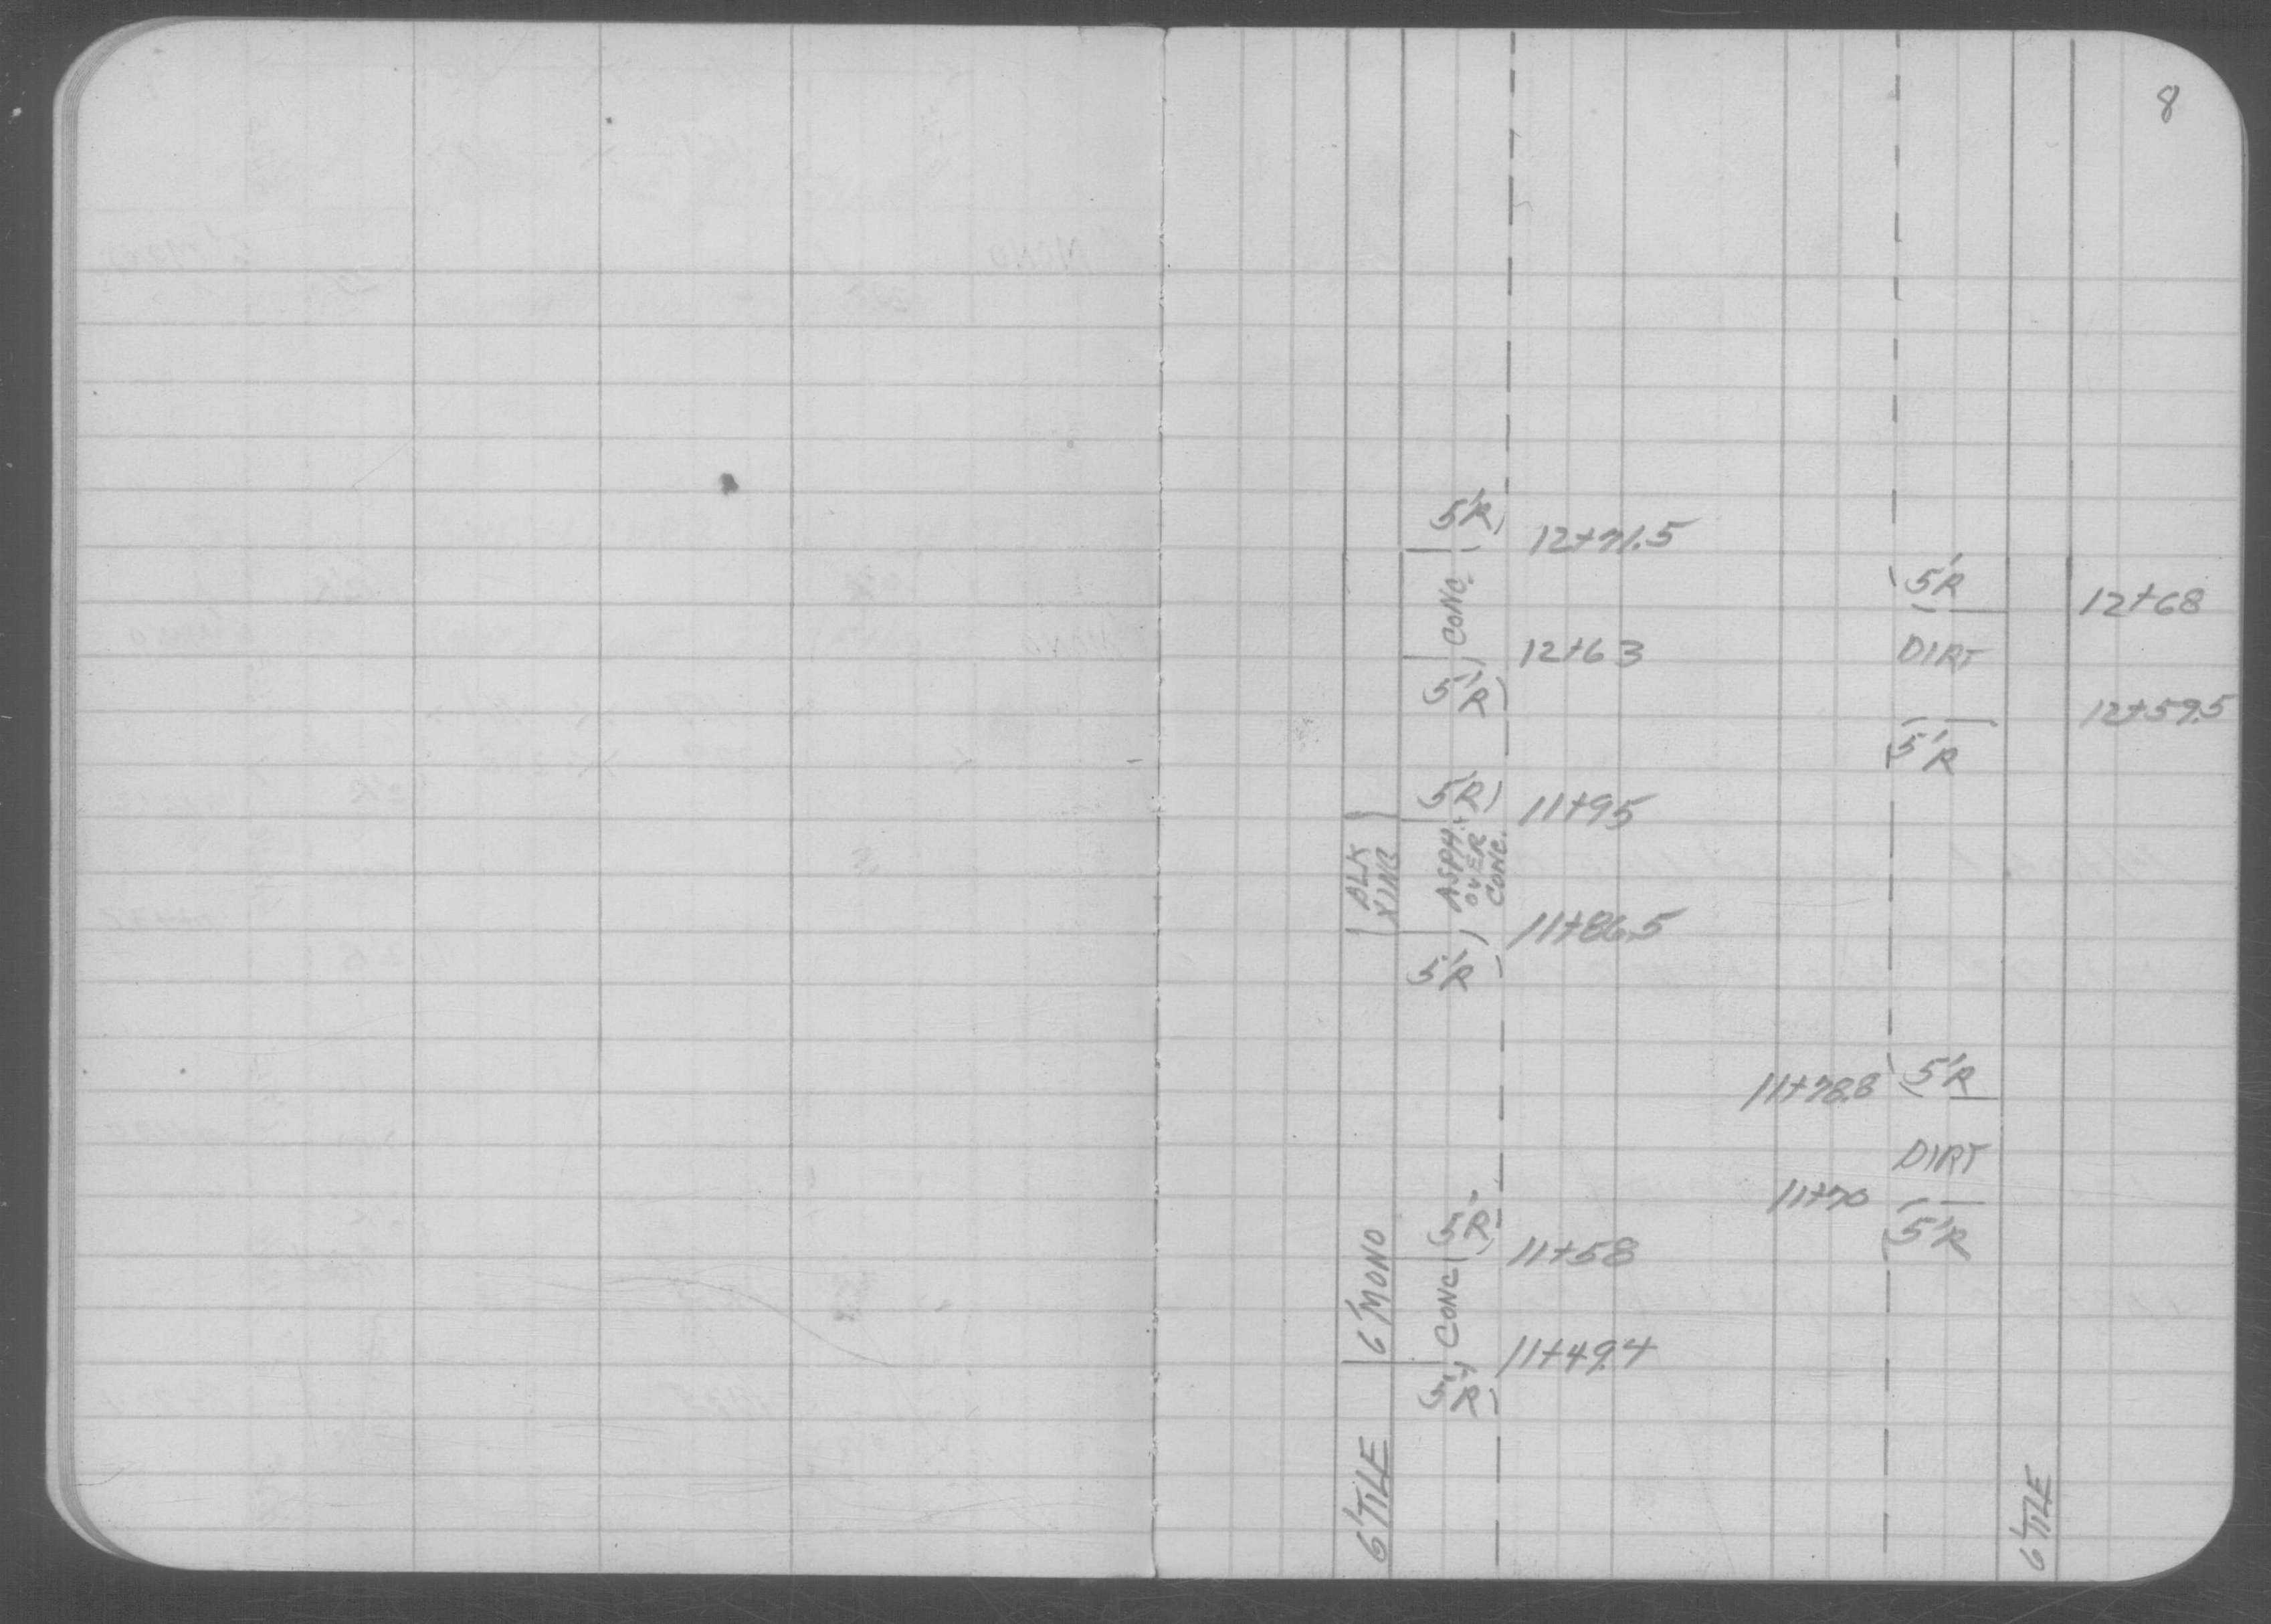 8
5'R
12+71.5
5'R
CONC.
12+68
12+63
DIRT
5'R
12+59.5
5'R
5'R
11+95
BLK
XING
ASPH.
OVER
CONC.
11+86.5
5'R
5'R
11+78.8
DIRT
11+70
5'R
5'R
11+58
6'MONO
CONC
11+49.4
5'R
6'TILE
6'TILE